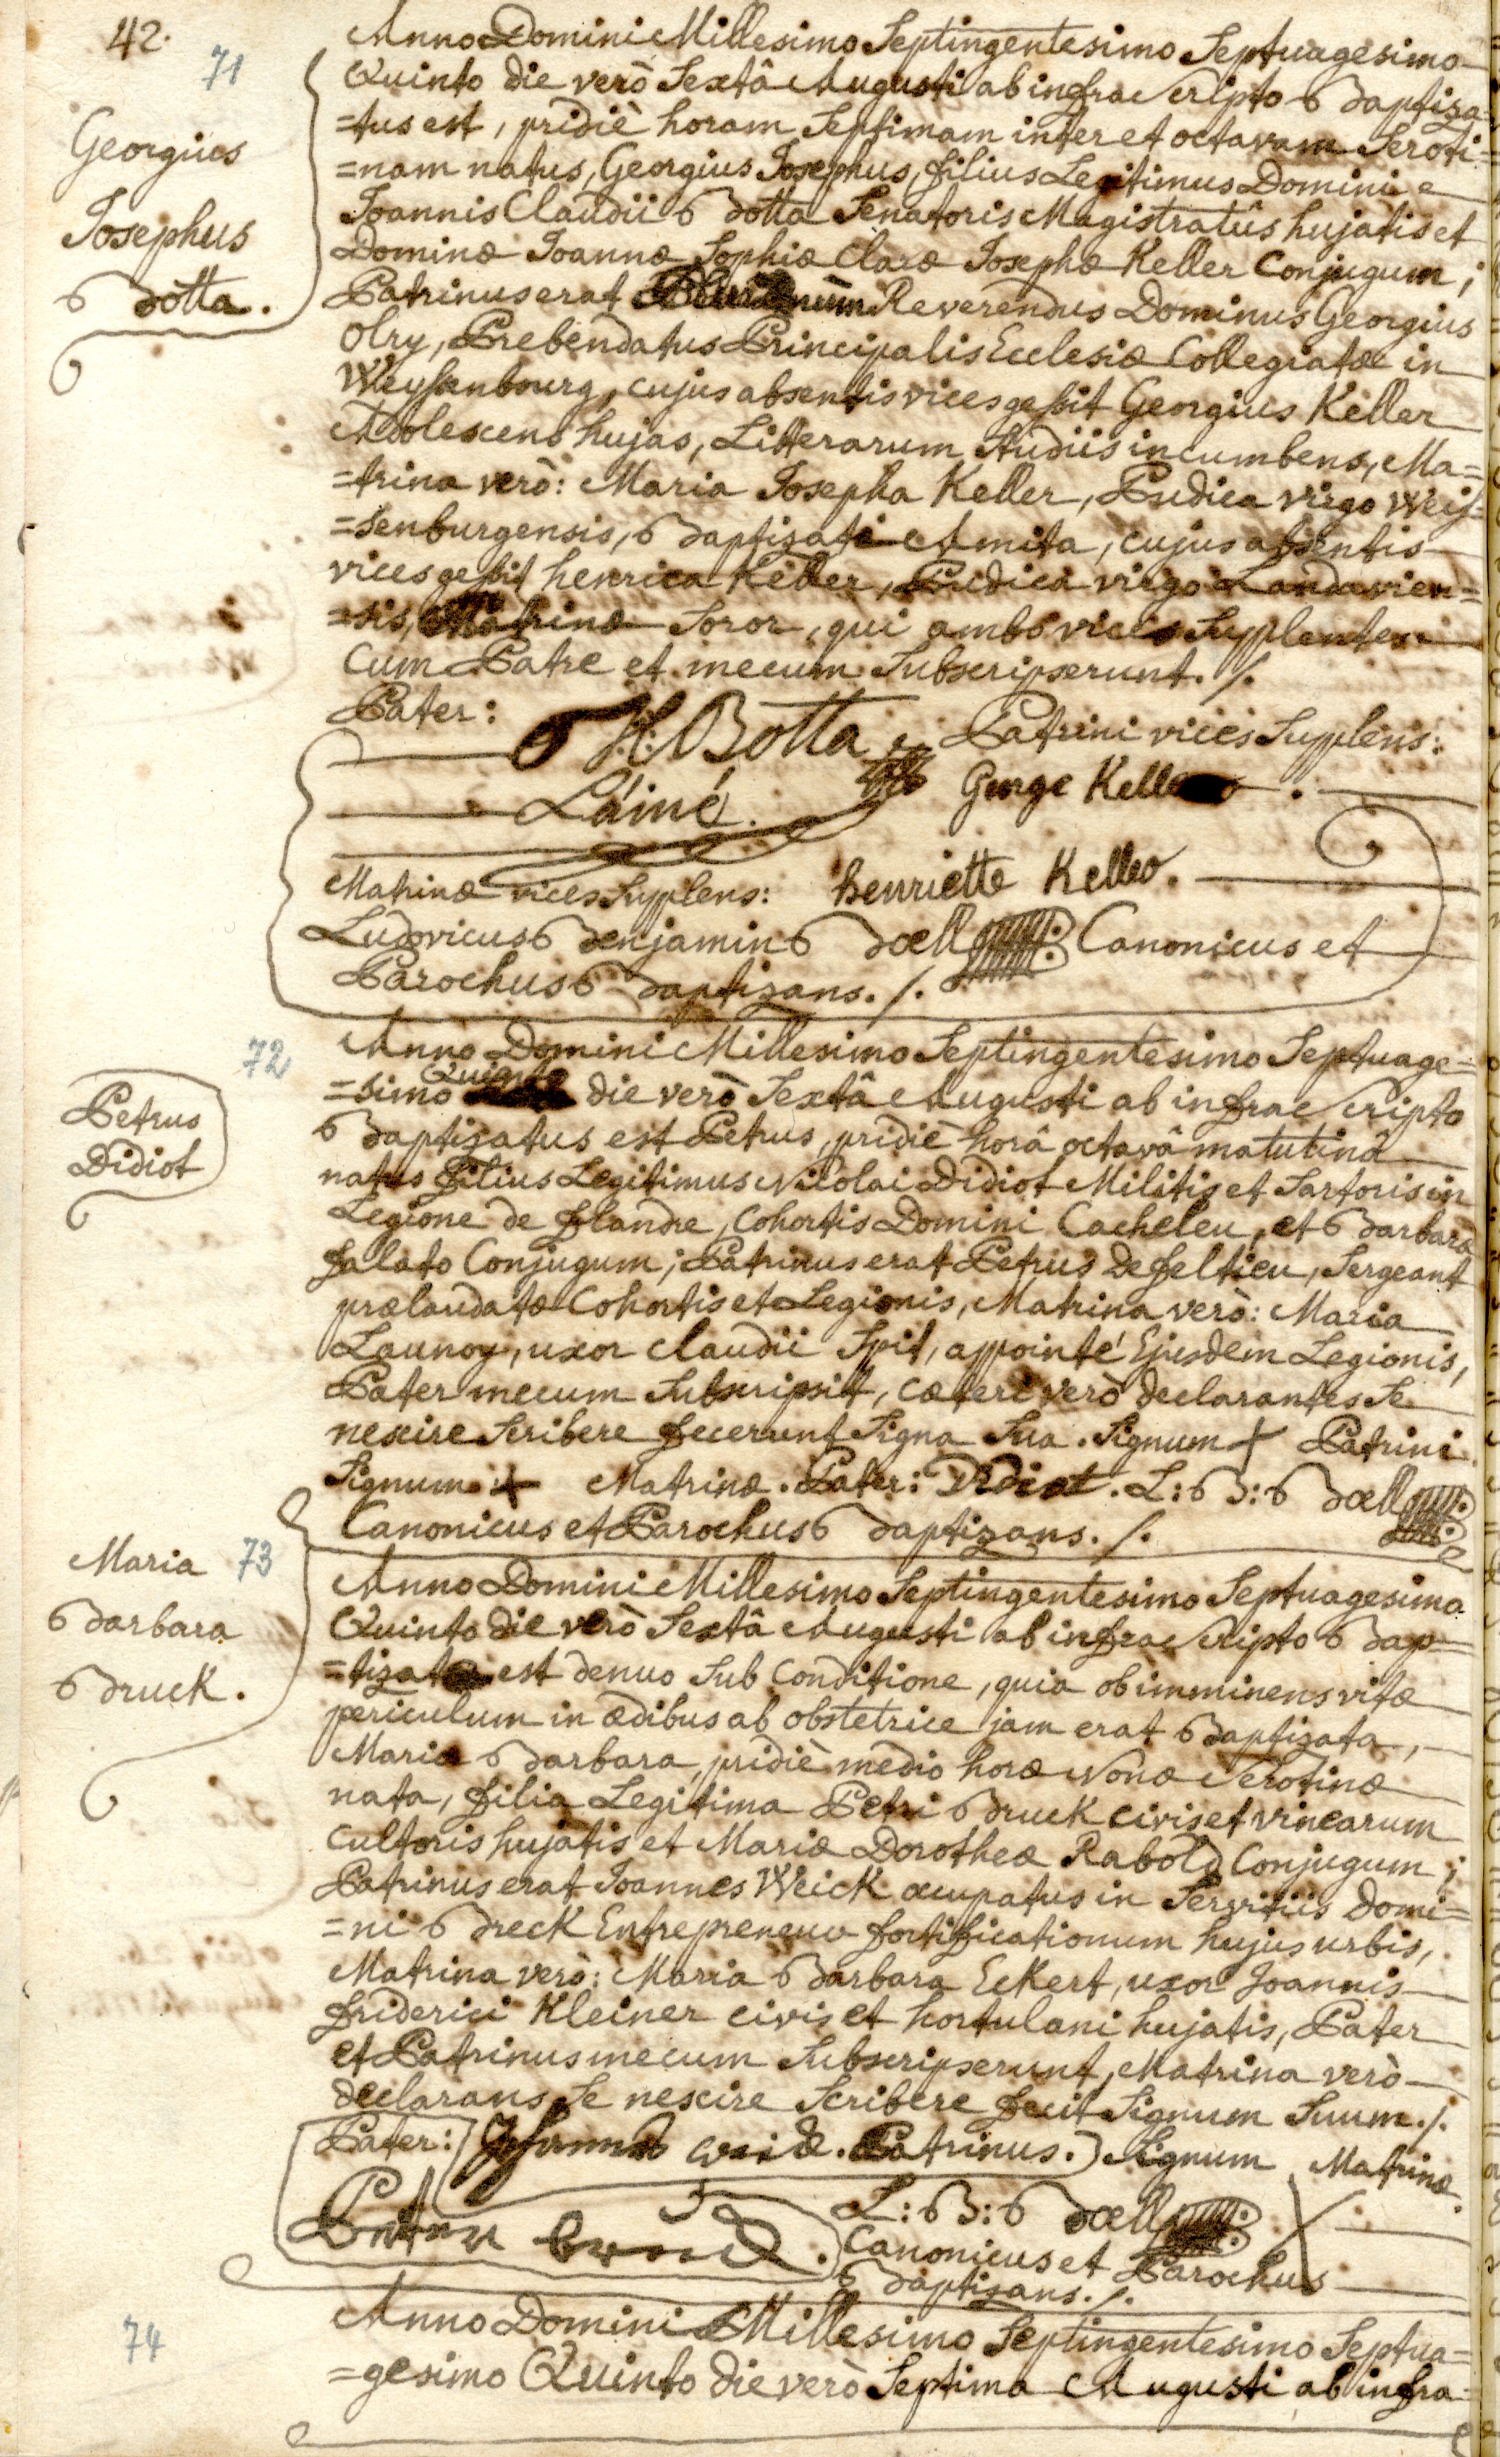 42.
71
Georgius
Josephus
Botta.
Anno Domini Millesimo Septingentesimo Septuagesimo
Quinto die verò Sextâ Augusti ab infrascripto Baptiza-
=tus est, pridiè horam Septimam inter et octavam Seroti=
=nam natus, Georgius Josephus, filius Legitimus Domini
Joannis Claudii Botta Senatoris Magistratûs hujatis et
Dominæ Joannæ Sophiæ Claræ Josephæ Keller Conjugum;
Patrinus erat Reverendus Dominus Georgius
Olry, Prebendatus Principalis Ecclesiæ Collegiatæ in
Weyssenbourg, cujus absentis vices gessit Georgius Keller
Adolescens hujas, Litterarum Studiis incumbens, Ma=
=trina verò: Maria Josepha Keller, Pudica virgo Weis=
=senburgensis, Baptizati Amita, cujus absentis
vices gessit henrica Keller, Pudica virgo Landavien=
=sis, Matrinæ Soror, qui ambo vices Supplentes
Cum Patre et mecum Subscripserunt. /.
Pater:
H: Botta
Patrini vices Supplens:
L'áiné.
George Keller
Matrinæ vices Supplens: henriette Keller.
Ludovicus Benjamin Boell Canonicus et
Parochus Baptizans. /.
72
Petrus
Didiot
Anno Domini Millesimo Septingentesimo Septuage=
=simo Quinto die verò Sextâ Augusti ab infrascripto
Baptizatus est Petrus, pridiè horâ octavâ matutinâ
natus filius Legitimus Nicolai Didiot Militis et Sartoris in
Legione de Flandre, Cohortis Domini Cacheleu, et Barbara
Falato Conjugum; Patrinus erat Petrus Defeltieu, Sergeant
prælaudatæ Cohortis et Legionis, Matrina verò: Maria
Launoy, uxor Claudii Spit, appointé Ejusdem Legionis,
Pater mecum Subscripsit, cæteri verò declarantes Se
nescire Scribere fecerunt Signa Sua. Signum + Patrini
Signum + Matrinæ. Pater: Didiot. L: B: Boell
Canonicus et Parochus Baptizans. /.
73
Maria
Barbara
Bruck.
Anno Domini Millesimo Septingentesimo Septuagesimo
Quinto die verò Sextâ Augusti ab infrascripto Bap=
=tizata est denuo Sub Conditione, quia ob imminens vitæ
periculum in ædibus ab obstetrice jam erat Baptizata,
Maria Barbara, pridiè medio horæ Nonæ Serotinæ
nata, filia Legitima Petri Bruck civis et vinearum
Cultoris hujatis et Mariæ Dorotheæ Rabold Conjugum;
Patrinus erat Joannes Weick occupatus in Servitiis Domi=
=ni Breck Entrepreneur fortificationum hujus urbis,
Matrina verò: Maria Barbara Eckert, uxor Joannis
friderici Kleiner civis et hortulani hujatis, Pater
et Patrinus mecum Subscripserunt, Matrina verò
declarans Se nescire Scribere fecit Signum Suum. /.
Pater: Johannes weick. Patrinus. Signum Matrinæ.
L: B: Boell
Canonicus et Parochus
Baptizans. /.
74
Anno Domini Millesimo Septingentesimo Septua=
=gesimo Quinto die verò Septima Augusti ab infra-